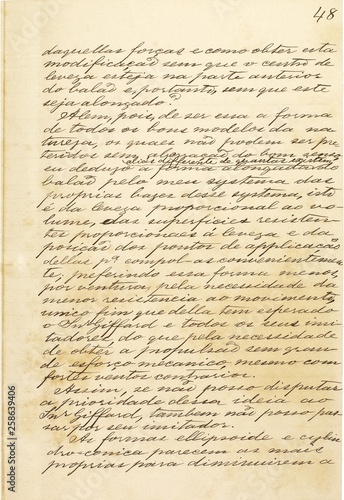 48
daquellas forças e como obter esta
modificação sem que o centro de
leveza esteja na parte anterior
do balão e, portanto, sem que este
seja alongado.
Alem, pois, de ser essa a forma
de todos os bons modelos da na
tureza, os quaes não podem ser pre
teridos sem aberração do bom senso,
alias differente de quantas existem,
eu deduzo a forma alongada do
balão pelo meu systema das
proprias bazes desse systema, isto
é da leveza proporcional ao vo-
lume, das superficies resisten-
tes proporcionaes á leveza e da
posição dos pontos de applicação
dellas pª compol-as convenientemen
te, preferindo essa forma menos,
por ventura, pela necessidade da
menor resistencia ao movimento,
unico fim que della tem esperado
o Snr Giffard e todos os seus imi-
tadores, do que pela necessidade
de obter a propulsão sem gran
de esforço mecanico, mesmo com
fortes ventos contrarios.
Assim, se não posso disputar
a prioridade dessa ideia ao
Snr Giffard, tambem não posso pas
sar por seu imitador.
As formas ellipsoide e cylin
dro-conica parecem as mais
proprias para diminuirem a